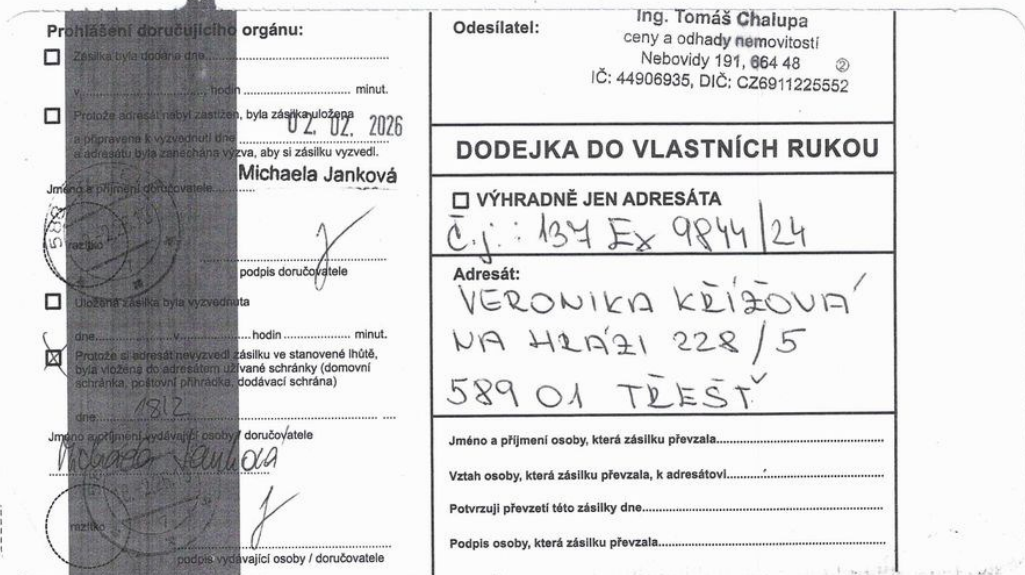 Prohlášení doručujícího orgánu:
Zásilka byla dodána dne
v hodin minut.
Protože adresát nebyl zastižen, byla zásilka uložena
a připravena k vyzvednutí dne 02. 02. 2026
a adresátu byla zanechána výzva, aby si zásilku vyzvedl.
Michaela Janková
Jméno a příjmení doručovatele
razítko
podpis doručovatele
Uložená zásilka byla vyzvednuta
dne v hodin minut.
Protože si adresát nevyzvedl zásilku ve stanovené lhůtě,
byla vložena do adresátem užívané schránky (domovní
schránka, poštovní přihrádka, dodávací schrána)
dne 18/2
Jméno a příjmení vydávající osoby / doručovatele
Michaela Janková
razítko
podpis vydávající osoby / doručovatele
Odesílatel:
Ing. Tomáš Chalupa
ceny a odhady nemovitostí
Nebovidy 191, 664 48 ②
IČ: 44906935, DIČ: CZ6911225552
DODEJKA DO VLASTNÍCH RUKOU
VÝHRADNĚ JEN ADRESÁTA
Č.j.: 137 Ex 9844/24
Adresát:
VERONIKA KŘÍŽOVÁ
NA HRÁZI 228/5
589 01 TŘEŠŤ
Jméno a příjmení osoby, která zásilku převzala
Vztah osoby, která zásilku převzala, k adresátovi
Potvrzuji převzetí této zásilky dne
Podpis osoby, která zásilku převzala